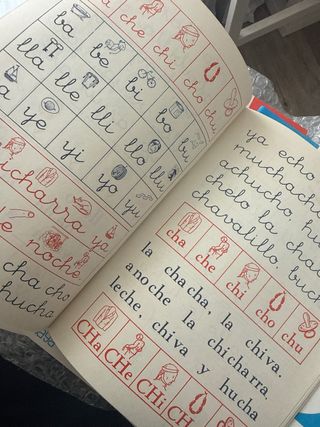 a che chi cho chu
ba be bi bo bu
lla lle lli llo llu
a ye yi yo yu
icharra ya
e noche
cha cho
hucha
ya echo
muchacha
achucho, h
chelo la cha
chavalillo, buch
cha che chi cho chu
la chacha, la chiva.
anoche la chicharra.
leche, chiva y hucha
CHa CHe CHi CHo CHu